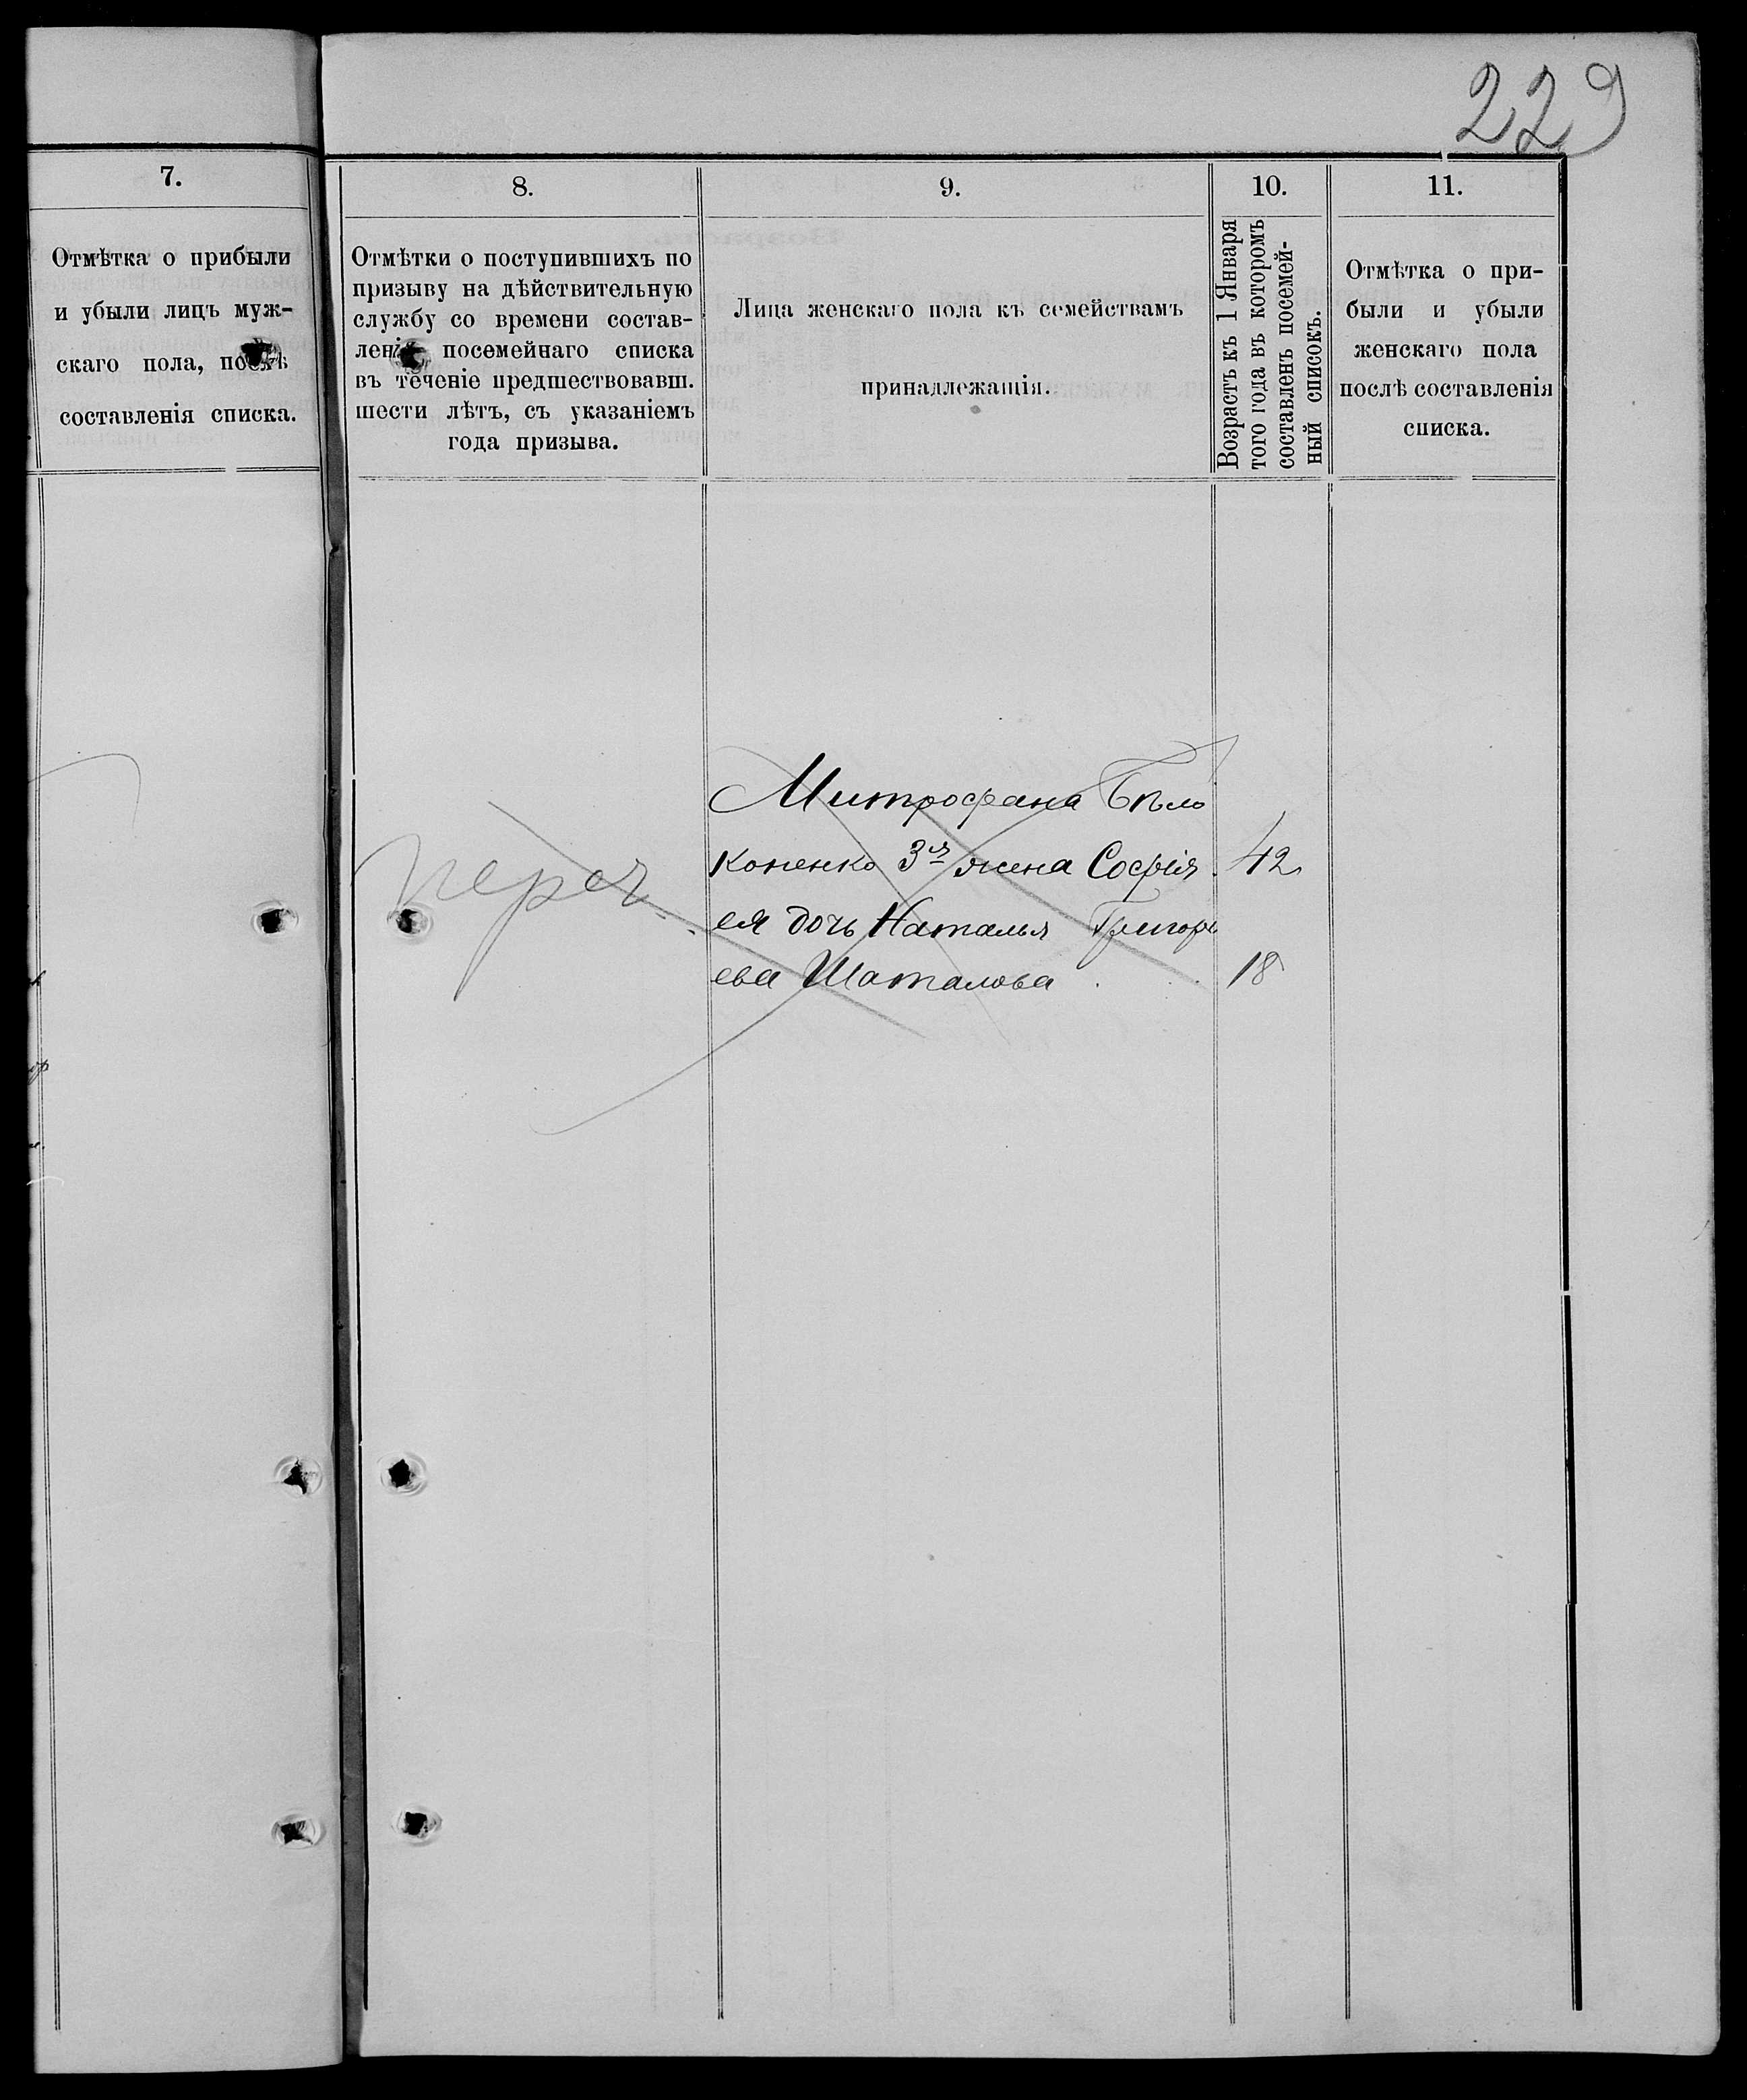 229
7.
Отмѣтка о прибыли
и убыли лицъ муж-
скаго пола, послѣ
составленія списка.
8.
Отмѣтки о поступившихъ по
призыву на дѣйствительную
службу со времени состав-
ленія посемейнаго списка
въ теченіе предшествовавш.
шести лѣтъ, съ указаніемъ
года призыва.
9.
Лица женскаго пола къ семействамъ
принадлежащія.
10.
Возрастъ къ 1 Января
того года въ которомъ
составленъ посемей-
ный списокъ.
11.
Отмѣтка о при-
были и убыли
женскаго пола
послѣ составленія
списка.
переч.
Митрофана Бѣло
коненко 3я жена Софія 42
ея дочь Наталья Григорь
ева Шаталова 18